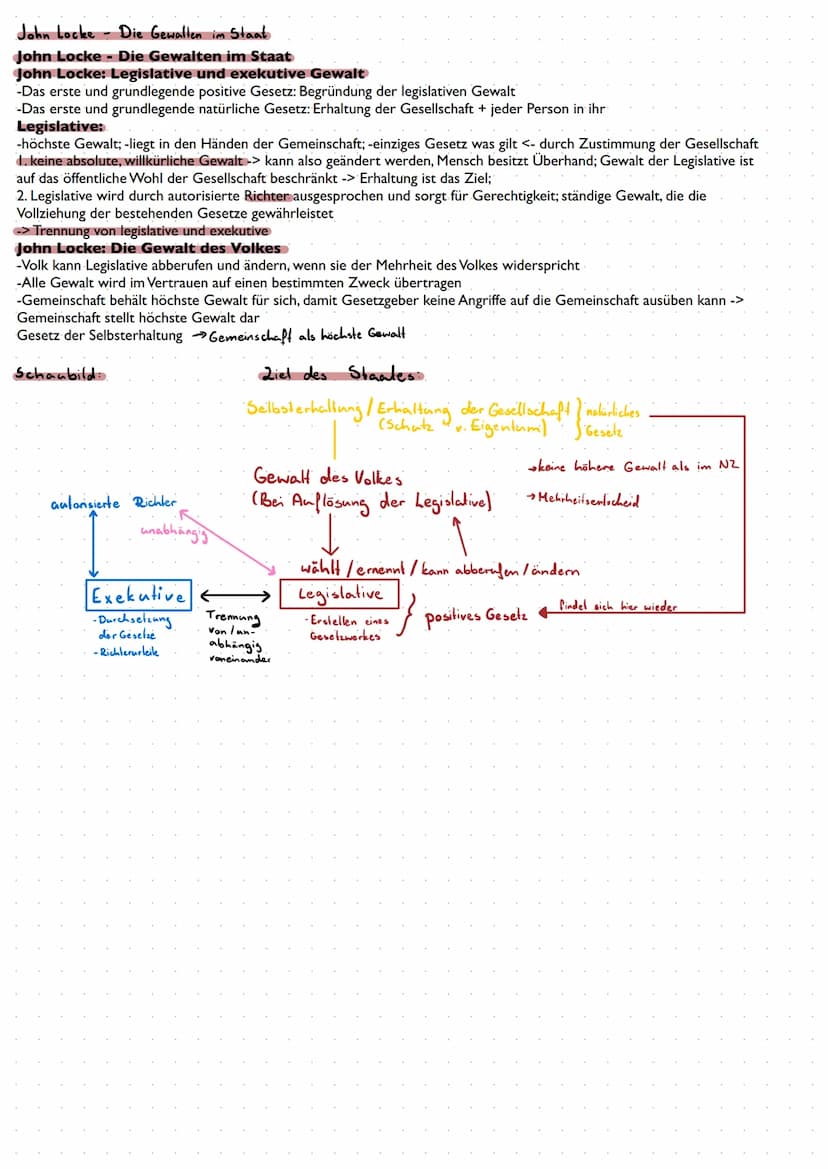 John Locke - Die Gewalten im Staat
John Locke - Die Gewalten im Staat
John Locke: Legislative und exekutive Gewalt
-Das erste und grundlegende positive Gesetz: Begründung der legislativen Gewalt
-Das erste und grundlegende natürliche Gesetz: Erhaltung der Gesellschaft + jeder Person in ihr
Legislative:
-höchste Gewalt; -liegt in den Händen der Gemeinschaft; -einziges Gesetz was gilt <- durch Zustimmung der Gesellschaft
1. keine absolute, willkürliche Gewalt -> kann also geändert werden, Mensch besitzt Überhand; Gewalt der Legislative ist
auf das öffentliche Wohl der Gesellschaft beschränkt -> Erhaltung ist das Ziel;
2. Legislative wird durch autorisierte Richter ausgesprochen und sorgt für Gerechtigkeit; ständige Gewalt, die die
Vollziehung der bestehenden Gesetze gewährleistet
-> Trennung von legislative und exekutive
John Locke: Die Gewalt des Volkes
-Volk kann Legislative abberufen und ändern, wenn sie der Mehrheit des Volkes widerspricht
-Alle Gewalt wird im Vertrauen auf einen bestimmten Zweck übertragen
-Gemeinschaft behält höchste Gewalt für sich, damit Gesetzgeber keine Angriffe auf die Gemeinschaft ausüben kann ->
Gemeinschaft stellt höchste Gewalt dar
Gesetz der Selbsterhaltung → Gemeinschaft als höchste Gewalt
Schaubild:
Ziel des Staates:
Selbsterhaltung / Erhaltung der Gesellschaft } natürliches
(Schutz v. Eigentum) } Gesetz
→ keine höhere Gewalt als im NZ
Gewalt des Volkes
(Bei Auflösung der Legislative)
→ Mehrheitsentscheid
autorisierte Richter
unabhängig
wählt / ernennt / kann abberufen / ändern
Exekutive
Legislative
- Durchsetzung
der Gesetze
- Richterurteile
Trennung
von / un-
abhängig
voneinander
- Erstellen eines
Gesetzwerkes
positives Gesetz
findet sich hier wieder